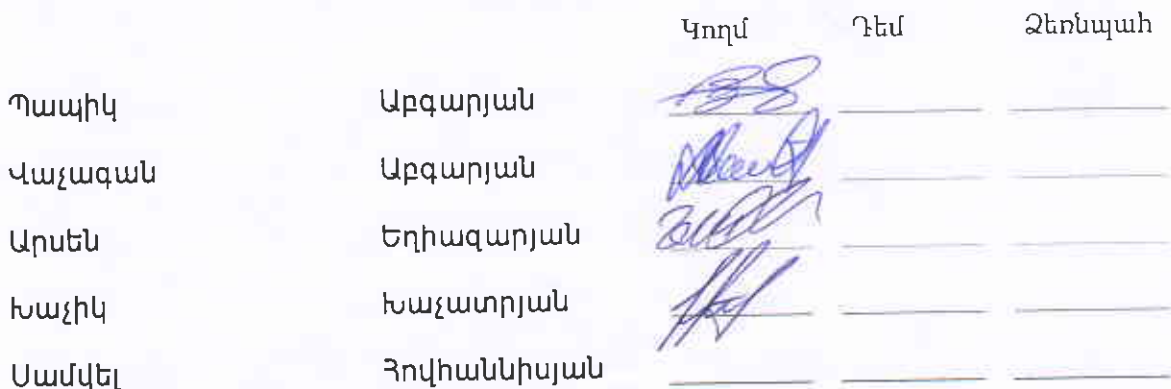 Կողմ Դեմ Ձեռնպահ
Պապիկ Աբգարյան
Վաչագան Աբգարյան
Արսեն Եղիազարյան
Խաչիկ Խաչատրյան
Սամվել Հովհաննիսյան